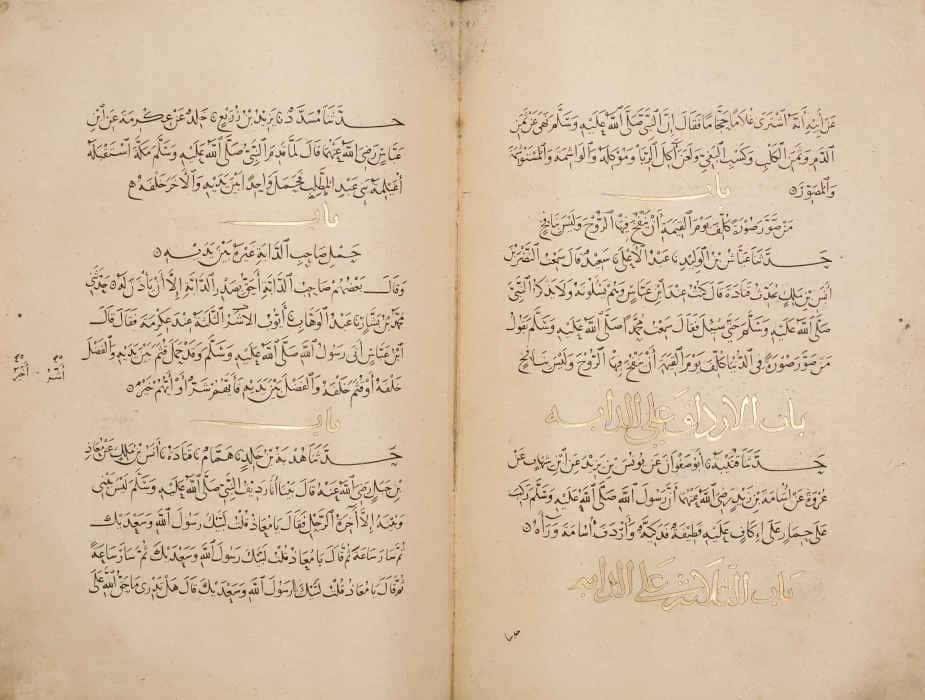 عَنْ أَبِيهِ أَنَّهُ اشْتَرَى غُلَامًا حَجَّامًا فَقَالَ إِنَّ النَّبِيَّ صَلَّى اللَّهُ عَلَيْهِ وَسَلَّمَ نَهَى عَنْ ثَمَنِ
الدَّمِ وَثَمَنِ الْكَلْبِ وَكَسْبِ الْبَغِيِّ وَلَعَنَ آكِلَ الرِّبَا وَمُوكِلَهُ وَالْوَاشِمَةَ وَالْمُسْتَوْشِمَةَ
وَالْمُصَوِّرَ
باب
مَنْ صَوَّرَ صُورَةً كُلِّفَ يَوْمَ الْقِيَمَةِ أَنْ يَنْفُخَ فِيهَا الرُّوحَ وَلَيْسَ بِنَافِخٍ
حَدَّثَنَا عَيَّاشُ بْنُ الْوَلِيدِ عَبْدُ الْأَعْلَى سَعِيدٌ قَالَ سَمِعْتُ النَّضْرَ بْنَ
أَنَسِ بْنِ مَالِكٍ يُحَدِّثُ قَتَادَةَ قَالَ كُنْتُ عِنْدَ ابْنِ عَبَّاسٍ وَهُمْ يَسْأَلُونَهُ وَلَا يَذْكُرُ النَّبِيَّ
صَلَّى اللَّهُ عَلَيْهِ وَسَلَّمَ حَتَّى سُئِلَ فَقَالَ سَمِعْتُ مُحَمَّدًا صَلَّى اللَّهُ عَلَيْهِ وَسَلَّمَ يَقُولُ
مَنْ صَوَّرَ صُورَةً فِي الدُّنْيَا كُلِّفَ يَوْمَ الْقِيَمَةِ أَنْ يَنْفُخَ فِيهَا الرُّوحَ وَلَيْسَ بِنَافِخٍ
باب الارتداف على الدابه
حَدَّثَنَا قُتَيْبَةُ أَبُو صَفْوَانَ عَنْ يُونُسَ بْنِ يَزِيدَ عَنِ ابْنِ شِهَابٍ عَنْ
عُرْوَةَ عَنْ أُسَامَةَ بْنِ زَيْدٍ رَضِيَ اللَّهُ عَنْهُمَا أَنَّ رَسُولَ اللَّهِ صَلَّى اللَّهُ عَلَيْهِ وَسَلَّمَ رَكِبَ
عَلَى حِمَارٍ عَلَى إِكَافٍ عَلَيْهِ قَطِيفَةٌ فَدَكِيَّةٌ وَأَرْدَفَ أُسَامَةَ وَرَاءَهُ
باب الثلاثة على الدابه
حَدَّثَنَا مُسَدَّدٌ يَزِيدُ بْنُ زُرَيْعٍ خَالِدٌ عَنْ عِكْرِمَةَ عَنِ ابْنِ
عَبَّاسٍ رَضِيَ اللَّهُ عَنْهُمَا قَالَ لَمَّا قَدِمَ النَّبِيُّ صَلَّى اللَّهُ عَلَيْهِ وَسَلَّمَ مَكَّةَ اسْتَقْبَلَهُ
أُغَيْلِمَةُ بَنِي عَبْدِ الْمُطَّلِبِ فَحَمَلَ وَاحِدًا بَيْنَ يَدَيْهِ وَالْآخَرَ خَلْفَهُ
باب
حَمْلِ صَاحِبِ الدَّابَّةِ غَيْرَهُ بَيْنَ يَدَيْهِ
وَقَالَ بَعْضُهُمْ صَاحِبُ الدَّابَّةِ أَحَقُّ بِصَدْرِ الدَّابَّةِ إِلَّا أَنْ يَأْذَنَ لَهُ حَدَّثَنِي
مُحَمَّدُ بْنُ بَشَّارٍ عَبْدُ الْوَهَّابِ أَيُّوبُ الْأَشَرُّ الثَّلَثَةُ عِنْدَ عِكْرِمَةَ فَقَالَ قَالَ
ابْنُ عَبَّاسٍ أَتَى رَسُولُ اللَّهِ صَلَّى اللَّهُ عَلَيْهِ وَسَلَّمَ وَقَدْ حَمَلَ قُثَمَ بَيْنَ يَدَيْهِ وَالْفَضْلَ
خَلْفَهُ أَوْ قُثَمَ خَلْفَهُ وَالْفَضْلَ بَيْنَ يَدَيْهِ فَأَيُّهُمْ شَرٌّ أَوْ أَيُّهُمْ خَيْرٌ
باب
حَدَّثَنَا هُدْبَةُ بْنُ خَالِدٍ هَمَّامٌ قَتَادَةُ أَنَسُ بْنُ مَالِكٍ عَنْ مُعَاذِ
بْنِ جَبَلٍ رَضِيَ اللَّهُ عَنْهُ قَالَ بَيْنَا أَنَا رَدِيفُ النَّبِيِّ صَلَّى اللَّهُ عَلَيْهِ وَسَلَّمَ لَيْسَ بَيْنِي
وَبَيْنَهُ إِلَّا آخِرَةُ الرَّحْلِ فَقَالَ يَا مُعَاذُ قُلْتُ لَبَّيْكَ رَسُولَ اللَّهِ وَسَعْدَيْكَ
ثُمَّ سَارَ سَاعَةً ثُمَّ قَالَ يَا مُعَاذُ قُلْتُ لَبَّيْكَ رَسُولَ اللَّهِ وَسَعْدَيْكَ ثُمَّ سَارَ سَاعَةً
ثُمَّ قَالَ يَا مُعَاذُ قُلْتُ لَبَّيْكَ رَسُولَ اللَّهِ وَسَعْدَيْكَ قَالَ هَلْ تَدْرِي مَا حَقُّ اللَّهِ عَلَى